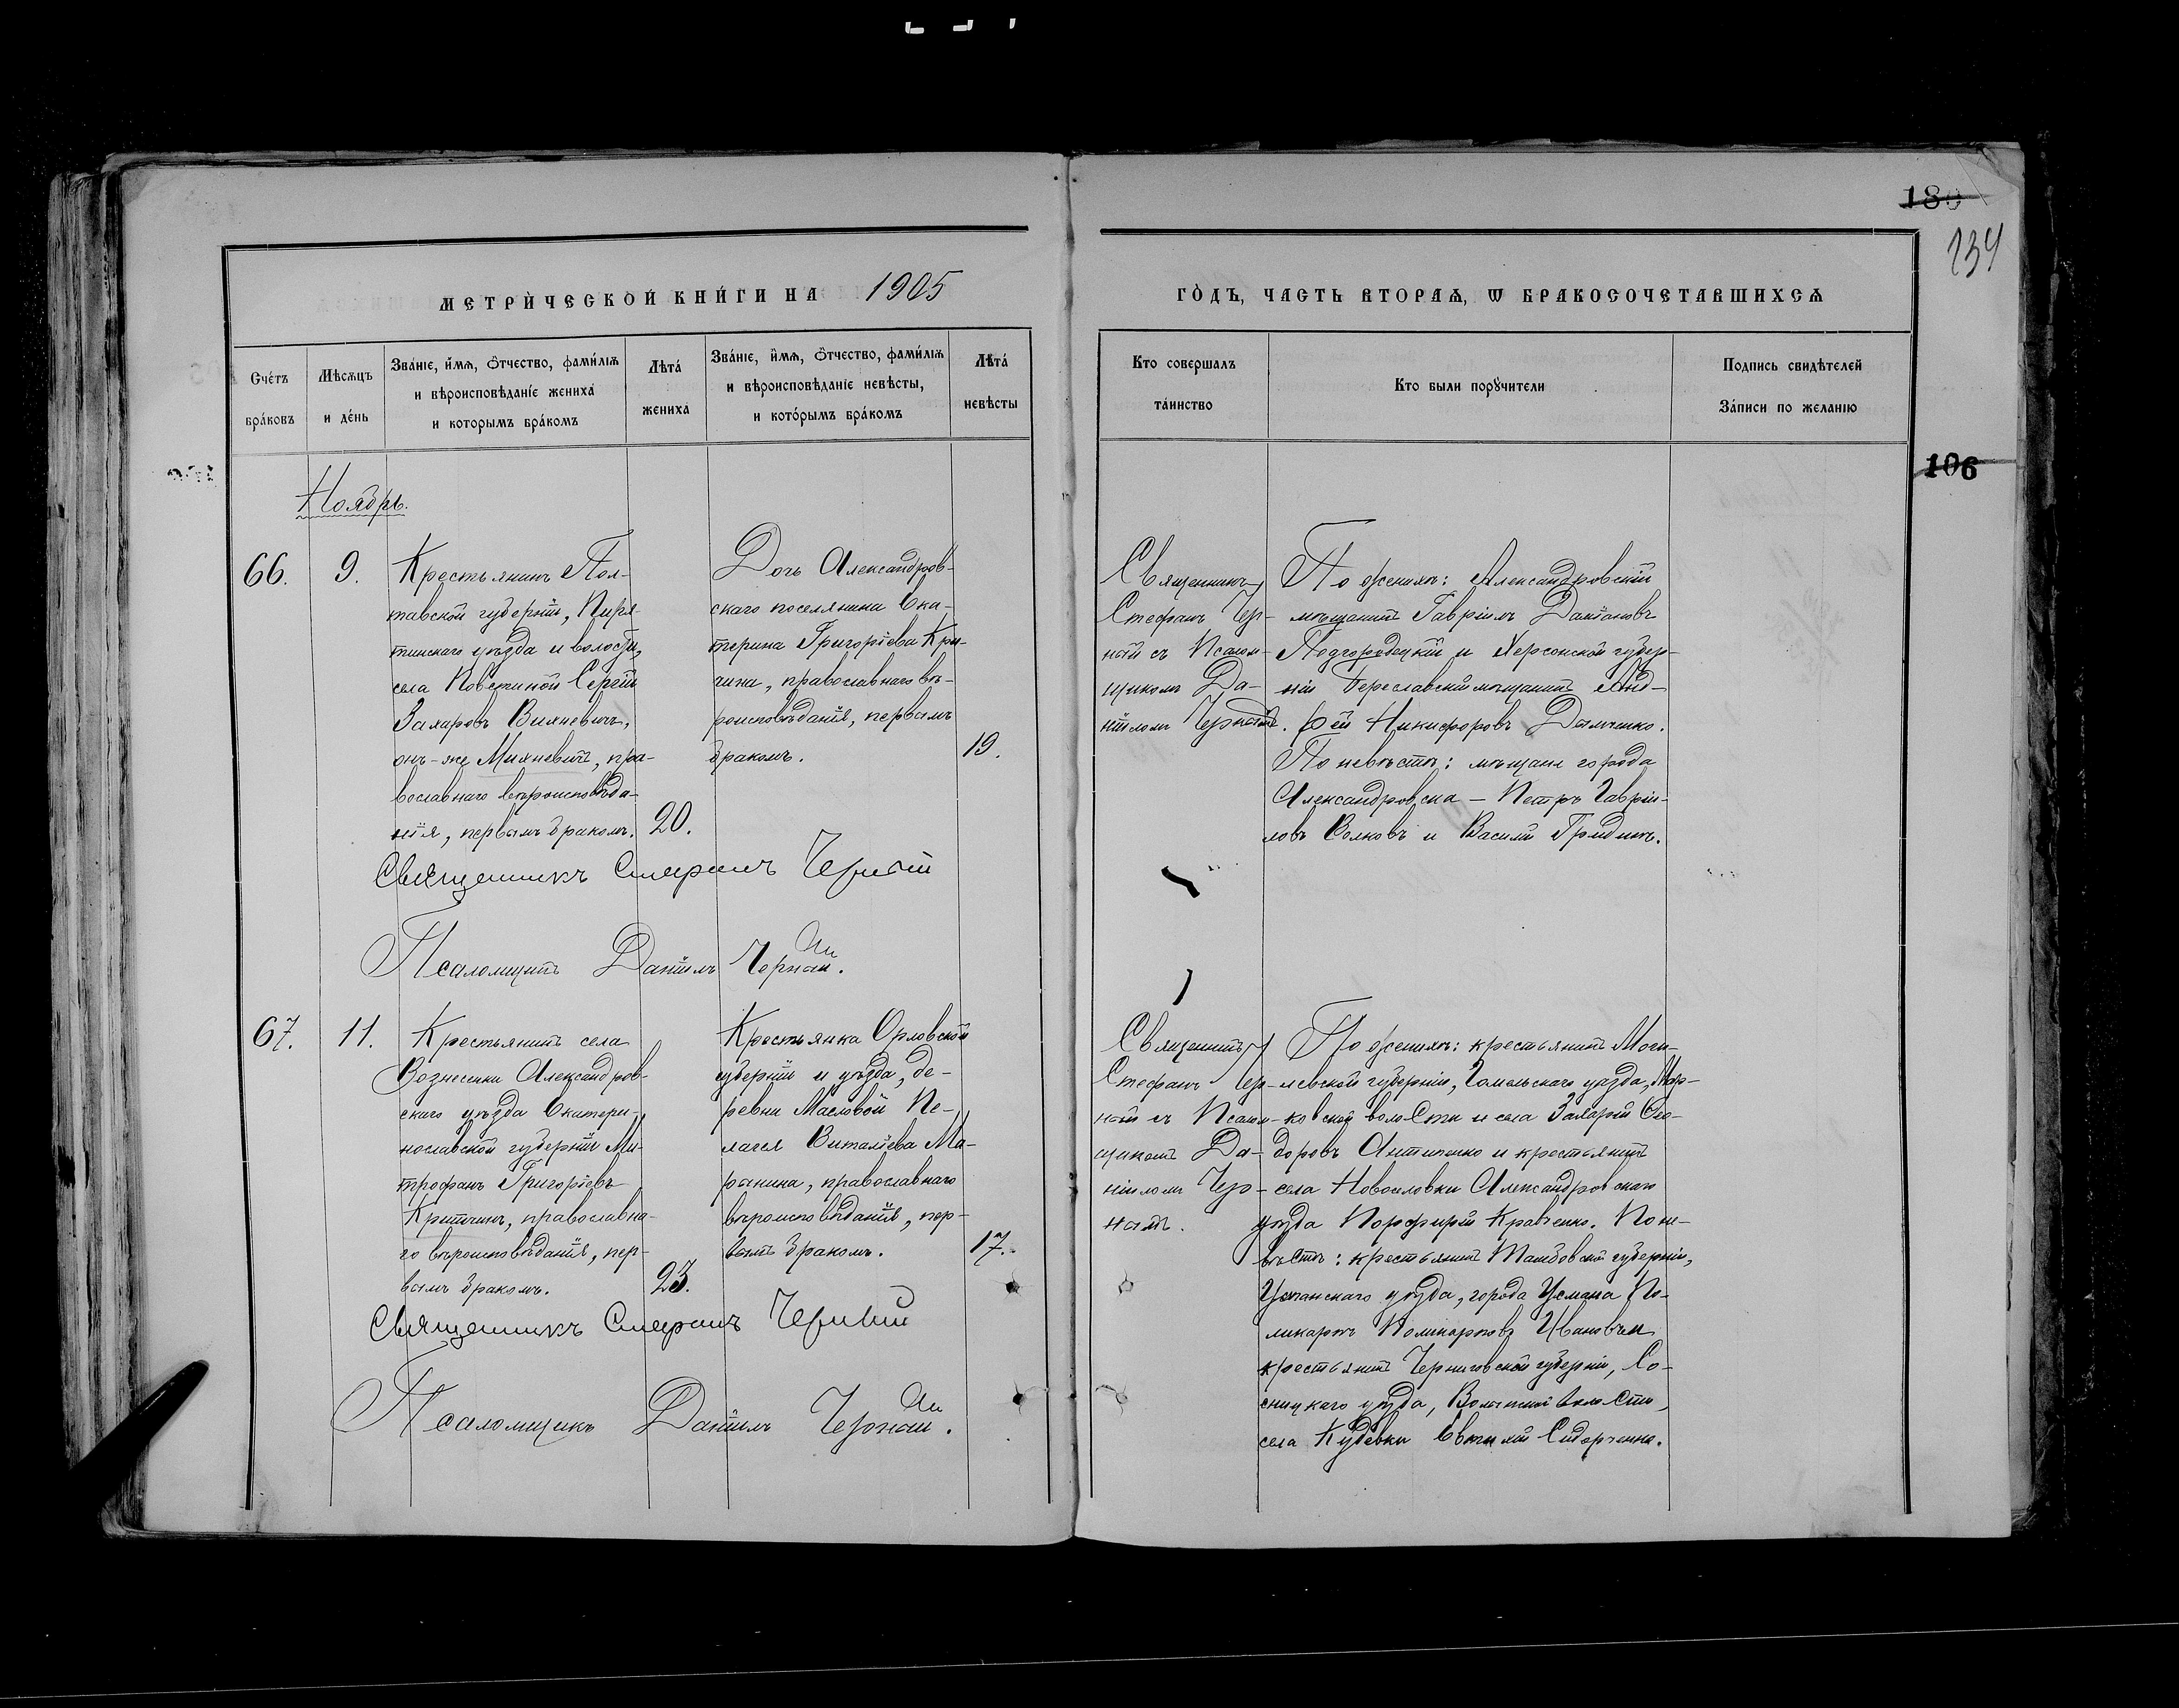 180
234
106
МЕТРИ́ЧЕСКОЙ КНИ́ГИ НА 1905
ГО́ДЪ, ЧАСТЬ ВТОРАѦ, Ѡ БРАКОСОЧЕТАВШИХСѦ
Сче́тъ бра́ковъ
Мѣсѧцъ и де́нь
Зва́ніе, и́мѧ, ѻ҆́тчество, фами́ліѧ
и вѣроисповѣда́ніе жениха̀
и которымъ бра́комъ
Лѣта̀ жениха̀
Зва́ніе, и́мѧ, ѻ҆́тчество, фами́ліѧ
и вѣроисповѣда́ніе невѣсты,
и кото́рымъ бра́комъ
Лѣта̀ невѣсты
Кто совершалъ та́инство
Кто были порꙋчители
Подпись свидѣтелей За́писи по желанію
Ноябрь.
66. 9.
Крестьянинъ Пол-
тавской губерніи, Пиря-
тинскаго уѣзда и волости,
села Повстиной Сергій
Захаровъ Вихневичъ,
онъ-же Михневичъ, пра-
вославнаго вѣроисповѣда-
нія, первымъ бракомъ. 20.
Дочь Александров-
скаго поселянина Ека-
терина Григорьева Кри-
чина, православнаго вѣ-
роисповѣданія, первымъ
бракомъ. 19.
Священникъ
Стефанъ Чер-
ный съ Псалом-
щикомъ Да-
ніиломъ Чернымъ.
По женихѣ: Александровскій
мѣщанинъ Гавріилъ Даміановъ
Подгородецкій и Херсонской губер-
ніи Береславскій мѣщанинъ Анд-
рей Никифоровъ Демченко.
По невѣстѣ: мѣщане города
Александровска – Петръ Гавріи-
ловъ Волковъ и Василій Гридинъ.
Священникъ Стефанъ Черный
Псаломщикъ Даніилъ Черный.
67. 11.
Крестьянинъ села
Вознесенки Александров-
скаго уѣзда Екатери-
нославской губерніи Ми-
трофанъ Григорьевъ
православна-
го вѣроисповѣданія, пер-
вымъ бракомъ. 23.
Крестьянка Орловской
губерніи и уѣзда, де-
ревни Масловой Пе-
лагея Виталіева Ма-
ранина, православнаго
вѣроисповѣданія, пер-
вымъ бракомъ. 17.
Священникъ
Стефанъ Чер-
ный съ Псалом-
щикомъ Да-
ніиломъ Чер-
нымъ.
По женихѣ: крестьянинъ Моги-
левской губерніи, Гомельскаго уѣзда, Мар-
ковской волости и села Захарій Ѳео-
доровъ Антипенко и крестьянинъ
села Новоселовки Александровскаго
уѣзда Порфирій Кравченко. По не-
вѣстѣ: крестьянинъ Тамбовской губерніи,
Усманскаго уѣзда, города Усмана По-
ликарпъ Поликарповъ Ивановъ и
крестьянинъ Черниговской губерніи, Со-
сницкаго уѣзда, волости,
села Евтихій Сидорченко.
Священникъ Стефанъ Черный
Псаломщикъ Даніилъ Черный.